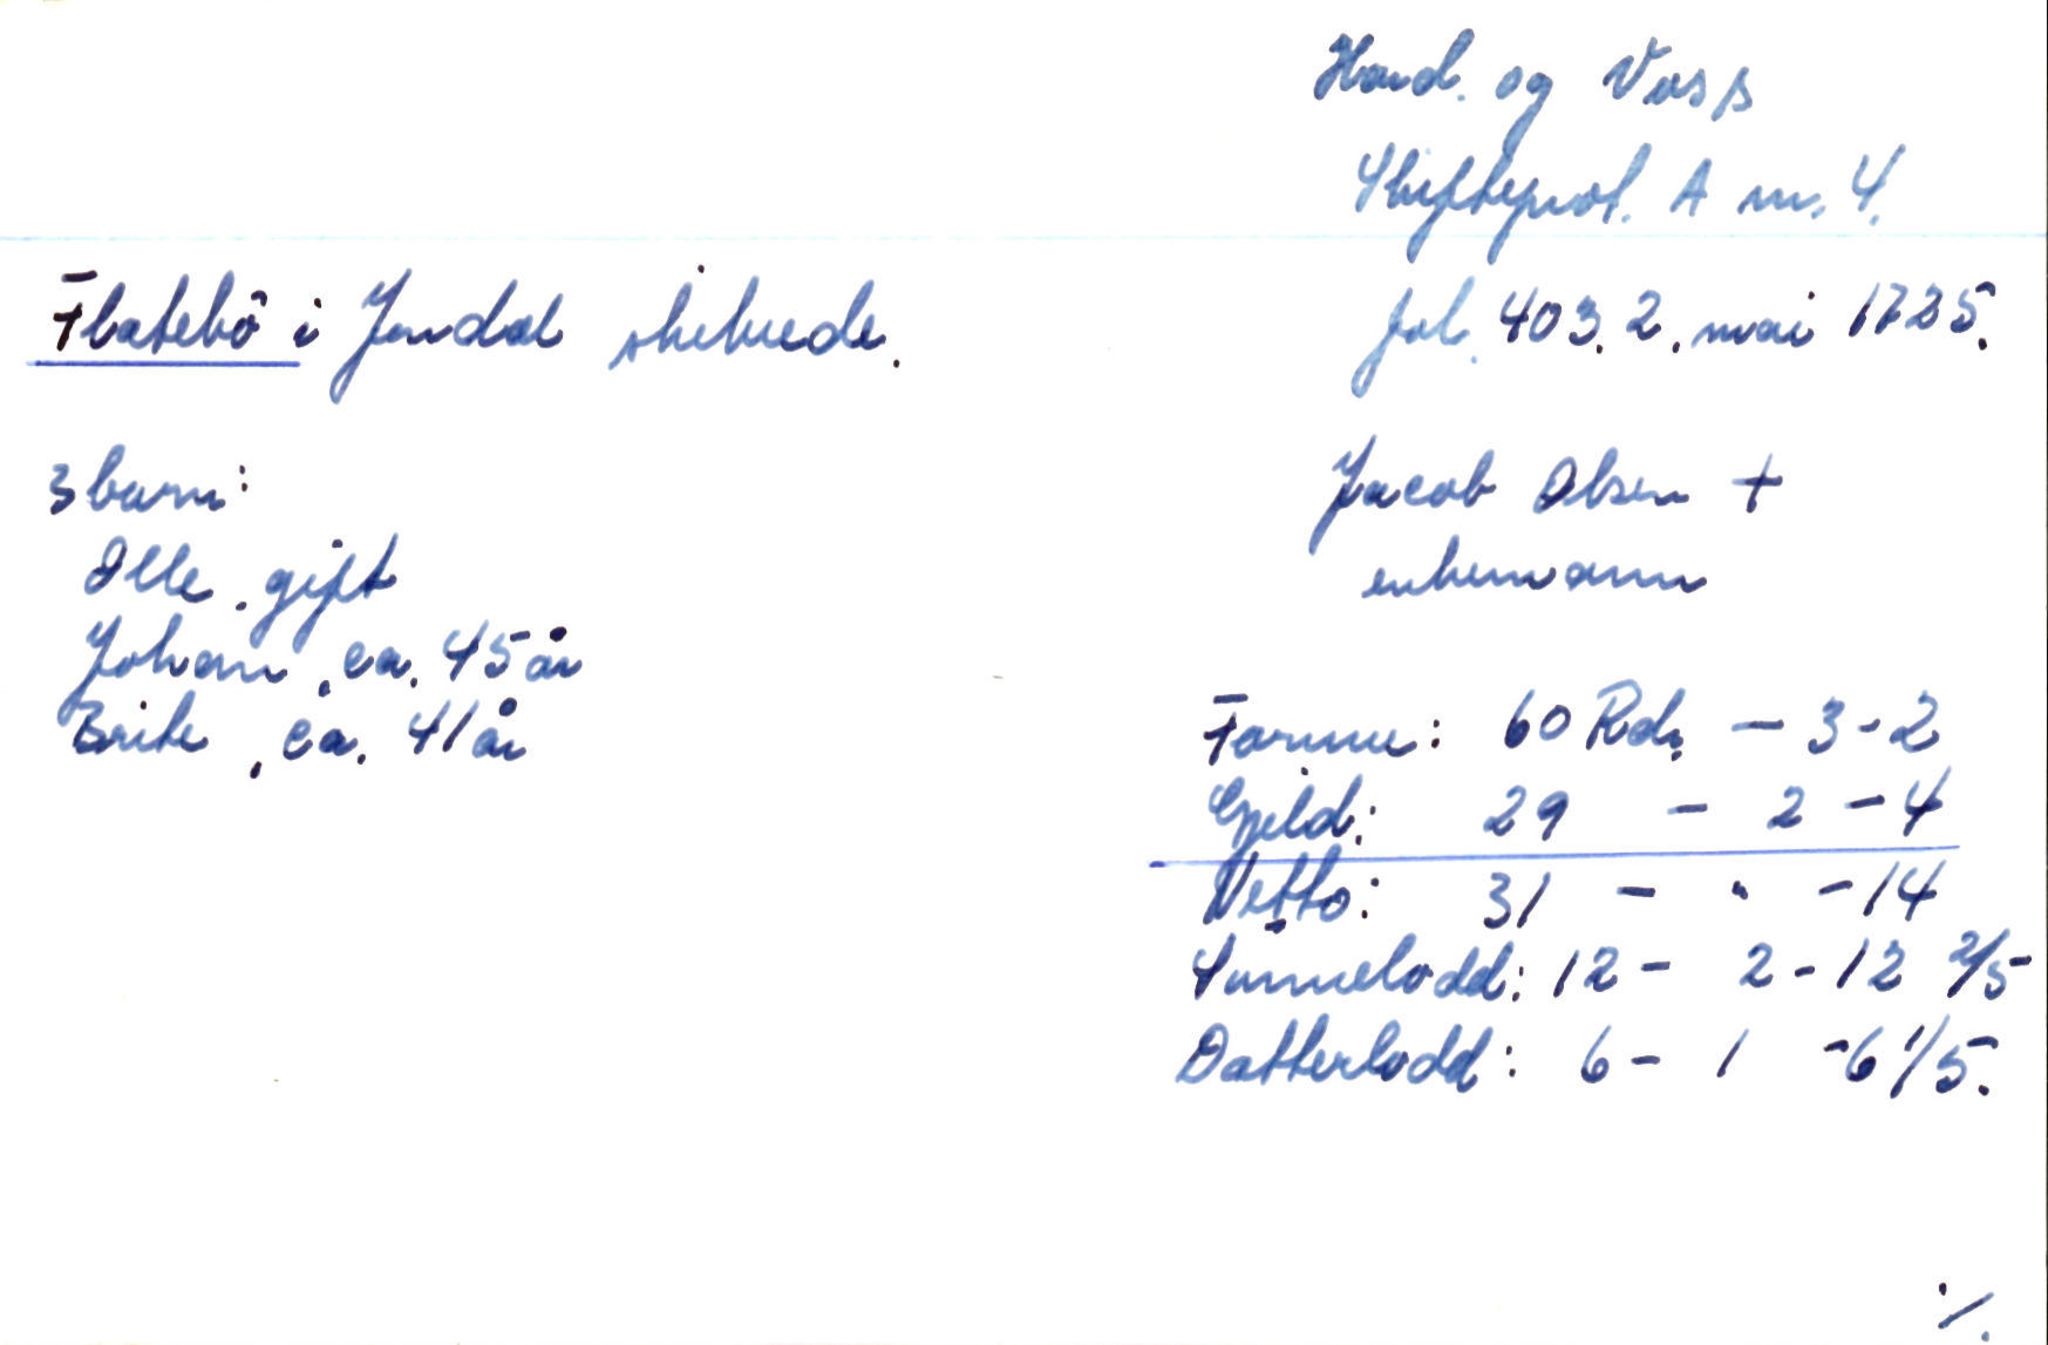 Hard. og Voss
Skifteprot. A nr. 4.
fol. 403. 2. mai 1725.
Flatebö i Jondal skibrede.
Jacob Olsen +
enkemann
3 barn:
Olle, gift
Johan, ca. 45 år
Brite, ca. 41 år
Formue: 60 Rd. - 3 - 2
Gjeld: 29 - 2 - 4
Netto: 31 - " - 14
Sönnelodd: 12 - 2 - 12 2/5
Datterlodd: 6 - 1 - 6 1/5.
./.